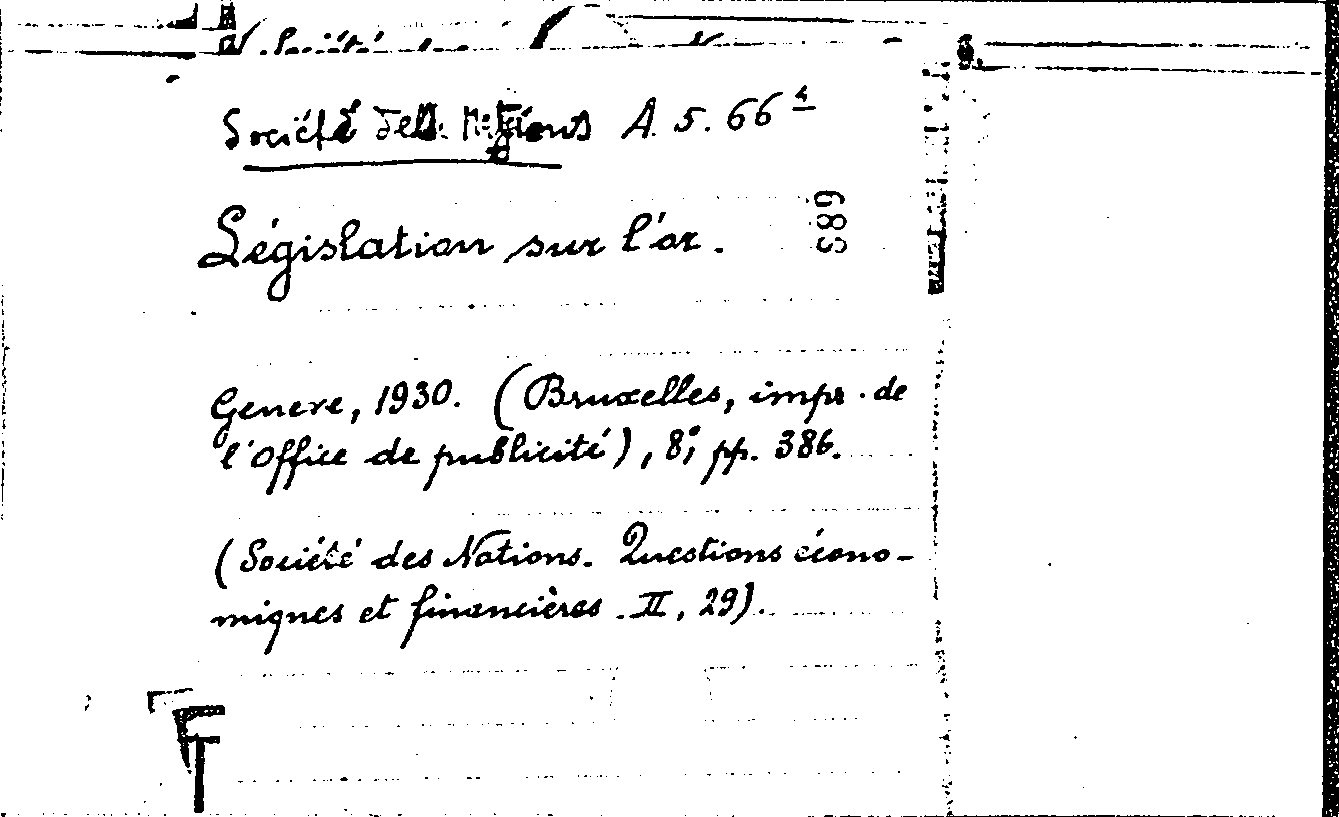 Société des Nations A. 5. 66⁴
Législation sur l'or.
689
Geneve, 1930. (Bruxelles, impr. de
l'Office de publicité), 8°, pp. 386.
(Société des Nations. Questions écono-
miques et financières. II, 29).